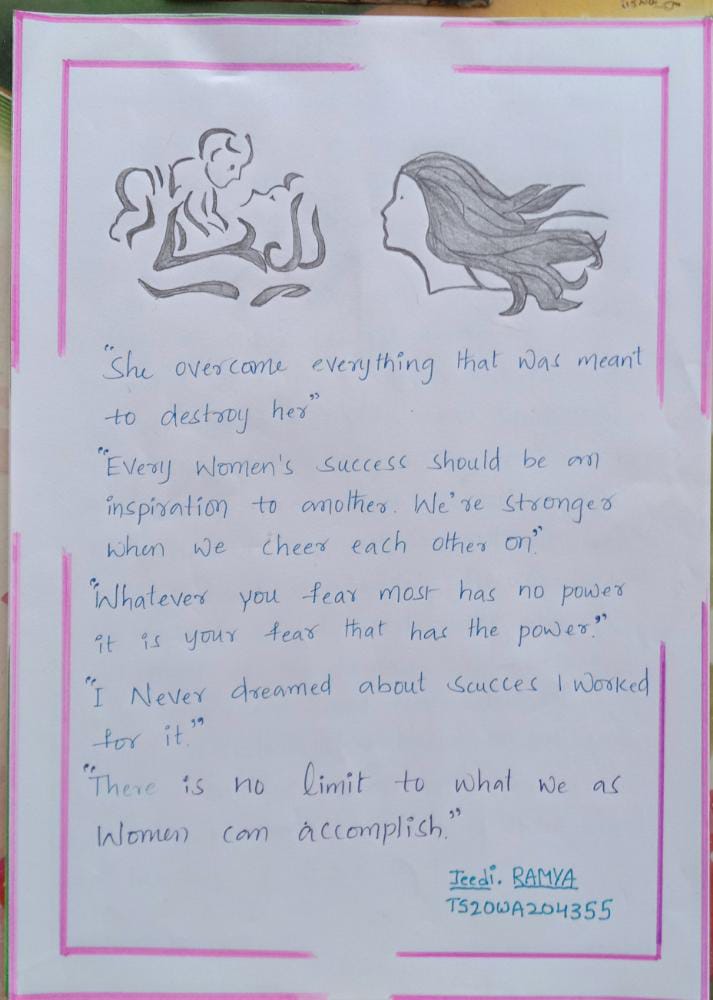 "She overcome everything that was meant
to destroy her"
"Every Women's success should be an
inspiration to another. We're stronger
when we cheer each other on."
"Whatever you fear most has no power
it is your fear that has the power."
"I Never dreamed about scucces I worked
for it."
"There is no limit to what we as
Women can accomplish."
Jeedi. RAMYA
TS20WA204355